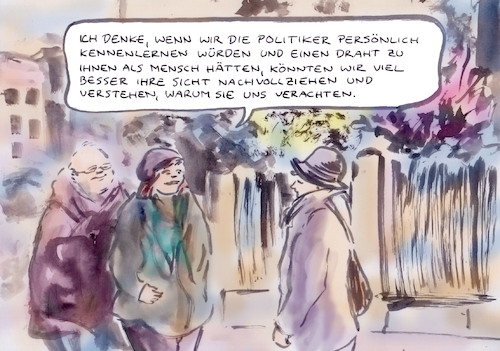 ICH DENKE, WENN WIR DIE POLITIKER PERSÖNLICH
KENNENLERNEN WÜRDEN UND EINEN DRAHT ZU
IHNEN ALS MENSCH HÄTTEN, KÖNNTEN WIR VIEL
BESSER IHRE SICHT NACHVOLLZIEHEN UND
VERSTEHEN, WARUM SIE UNS VERACHTEN.